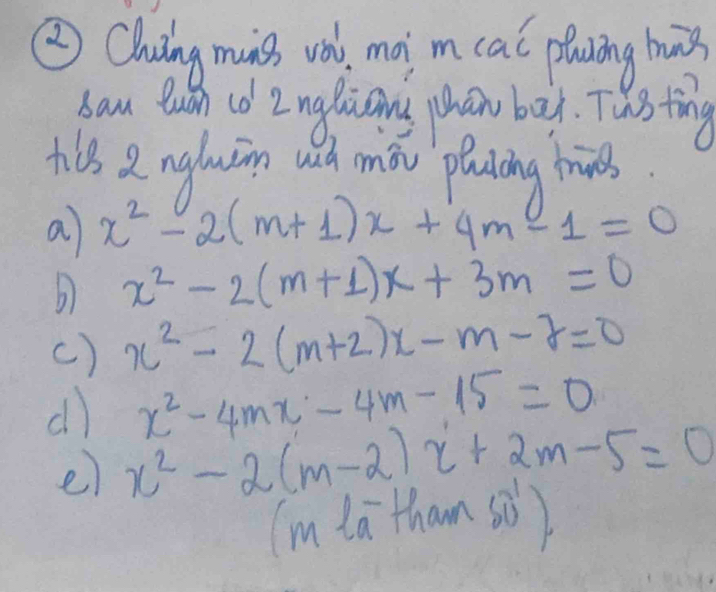 ② Chứng minh với mọi m các phương trình
sau luôn có 2 nghiệm phân biệt. Tính tổng
tích 2 nghiệm của mỗi phương trình.
a) x² - 2(m+1)x + 4m - 1 = 0
b) x² - 2(m+1)x + 3m = 0
c) x² - 2(m+2)x - m - 7 = 0
d) x² - 4mx - 4m - 15 = 0
e) x² - 2(m-2)x + 2m - 5 = 0
(m là tham số).